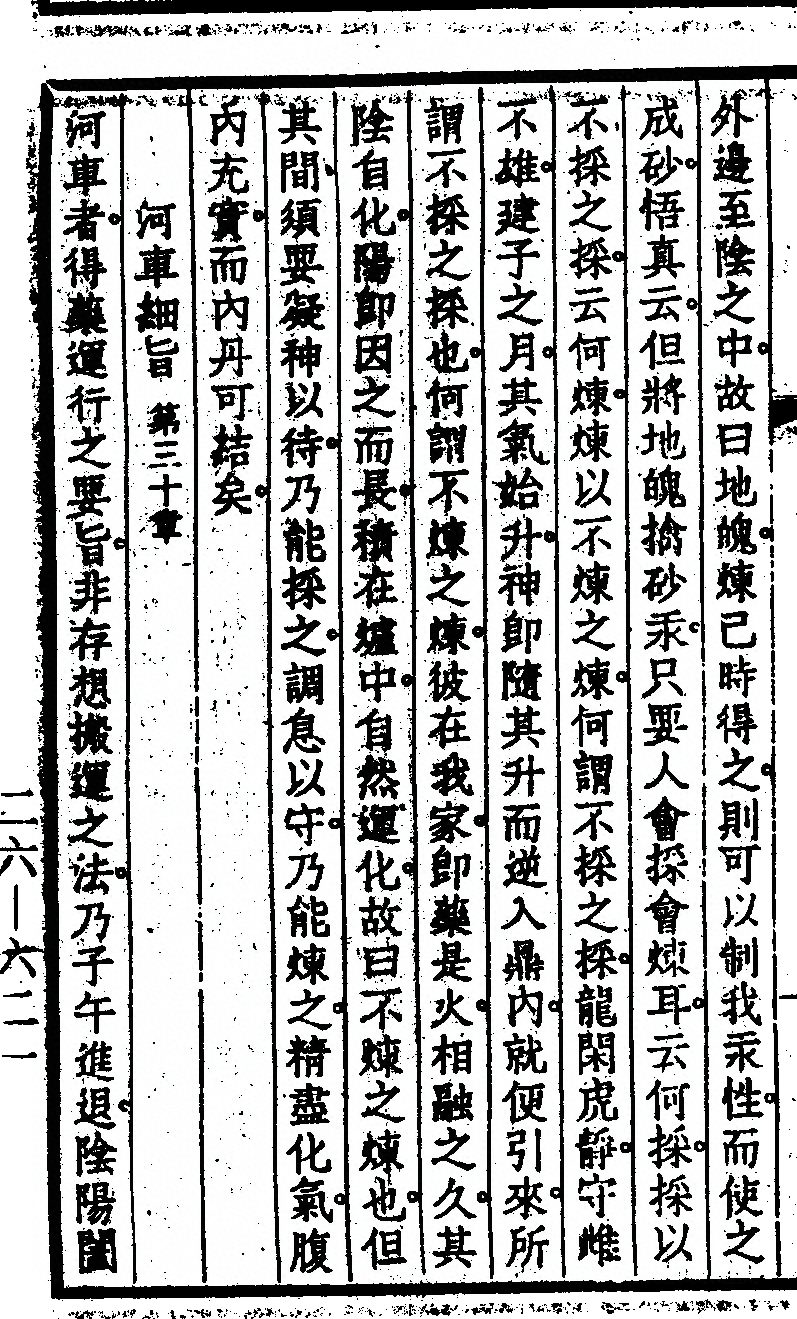 外邊至陰之中故曰地魄煉己時得之則可以制我汞性而使之
成砂悟真云但將地魄擒砂汞只要人會採會煉耳云何採採以
不採之採云何煉煉以不煉之煉何謂不採之採龍閑虎靜守雌
不雄建子之月其氣始升神卽隨其升而逆入鼎內就便引來所
謂不採之採也何謂不煉之煉彼在我家卽藥是火相融之久其
陰自化陽卽因之而長積在爐中自然運化故曰不煉之煉也但
其間須要凝神以待乃能採之調息以守乃能煉之精盡化氣腹
內充實而內丹可結矣
河車細旨 第三十章
河車者得藥運行之要旨非存想搬運之法乃子午進退陰陽闔
二六—六二一